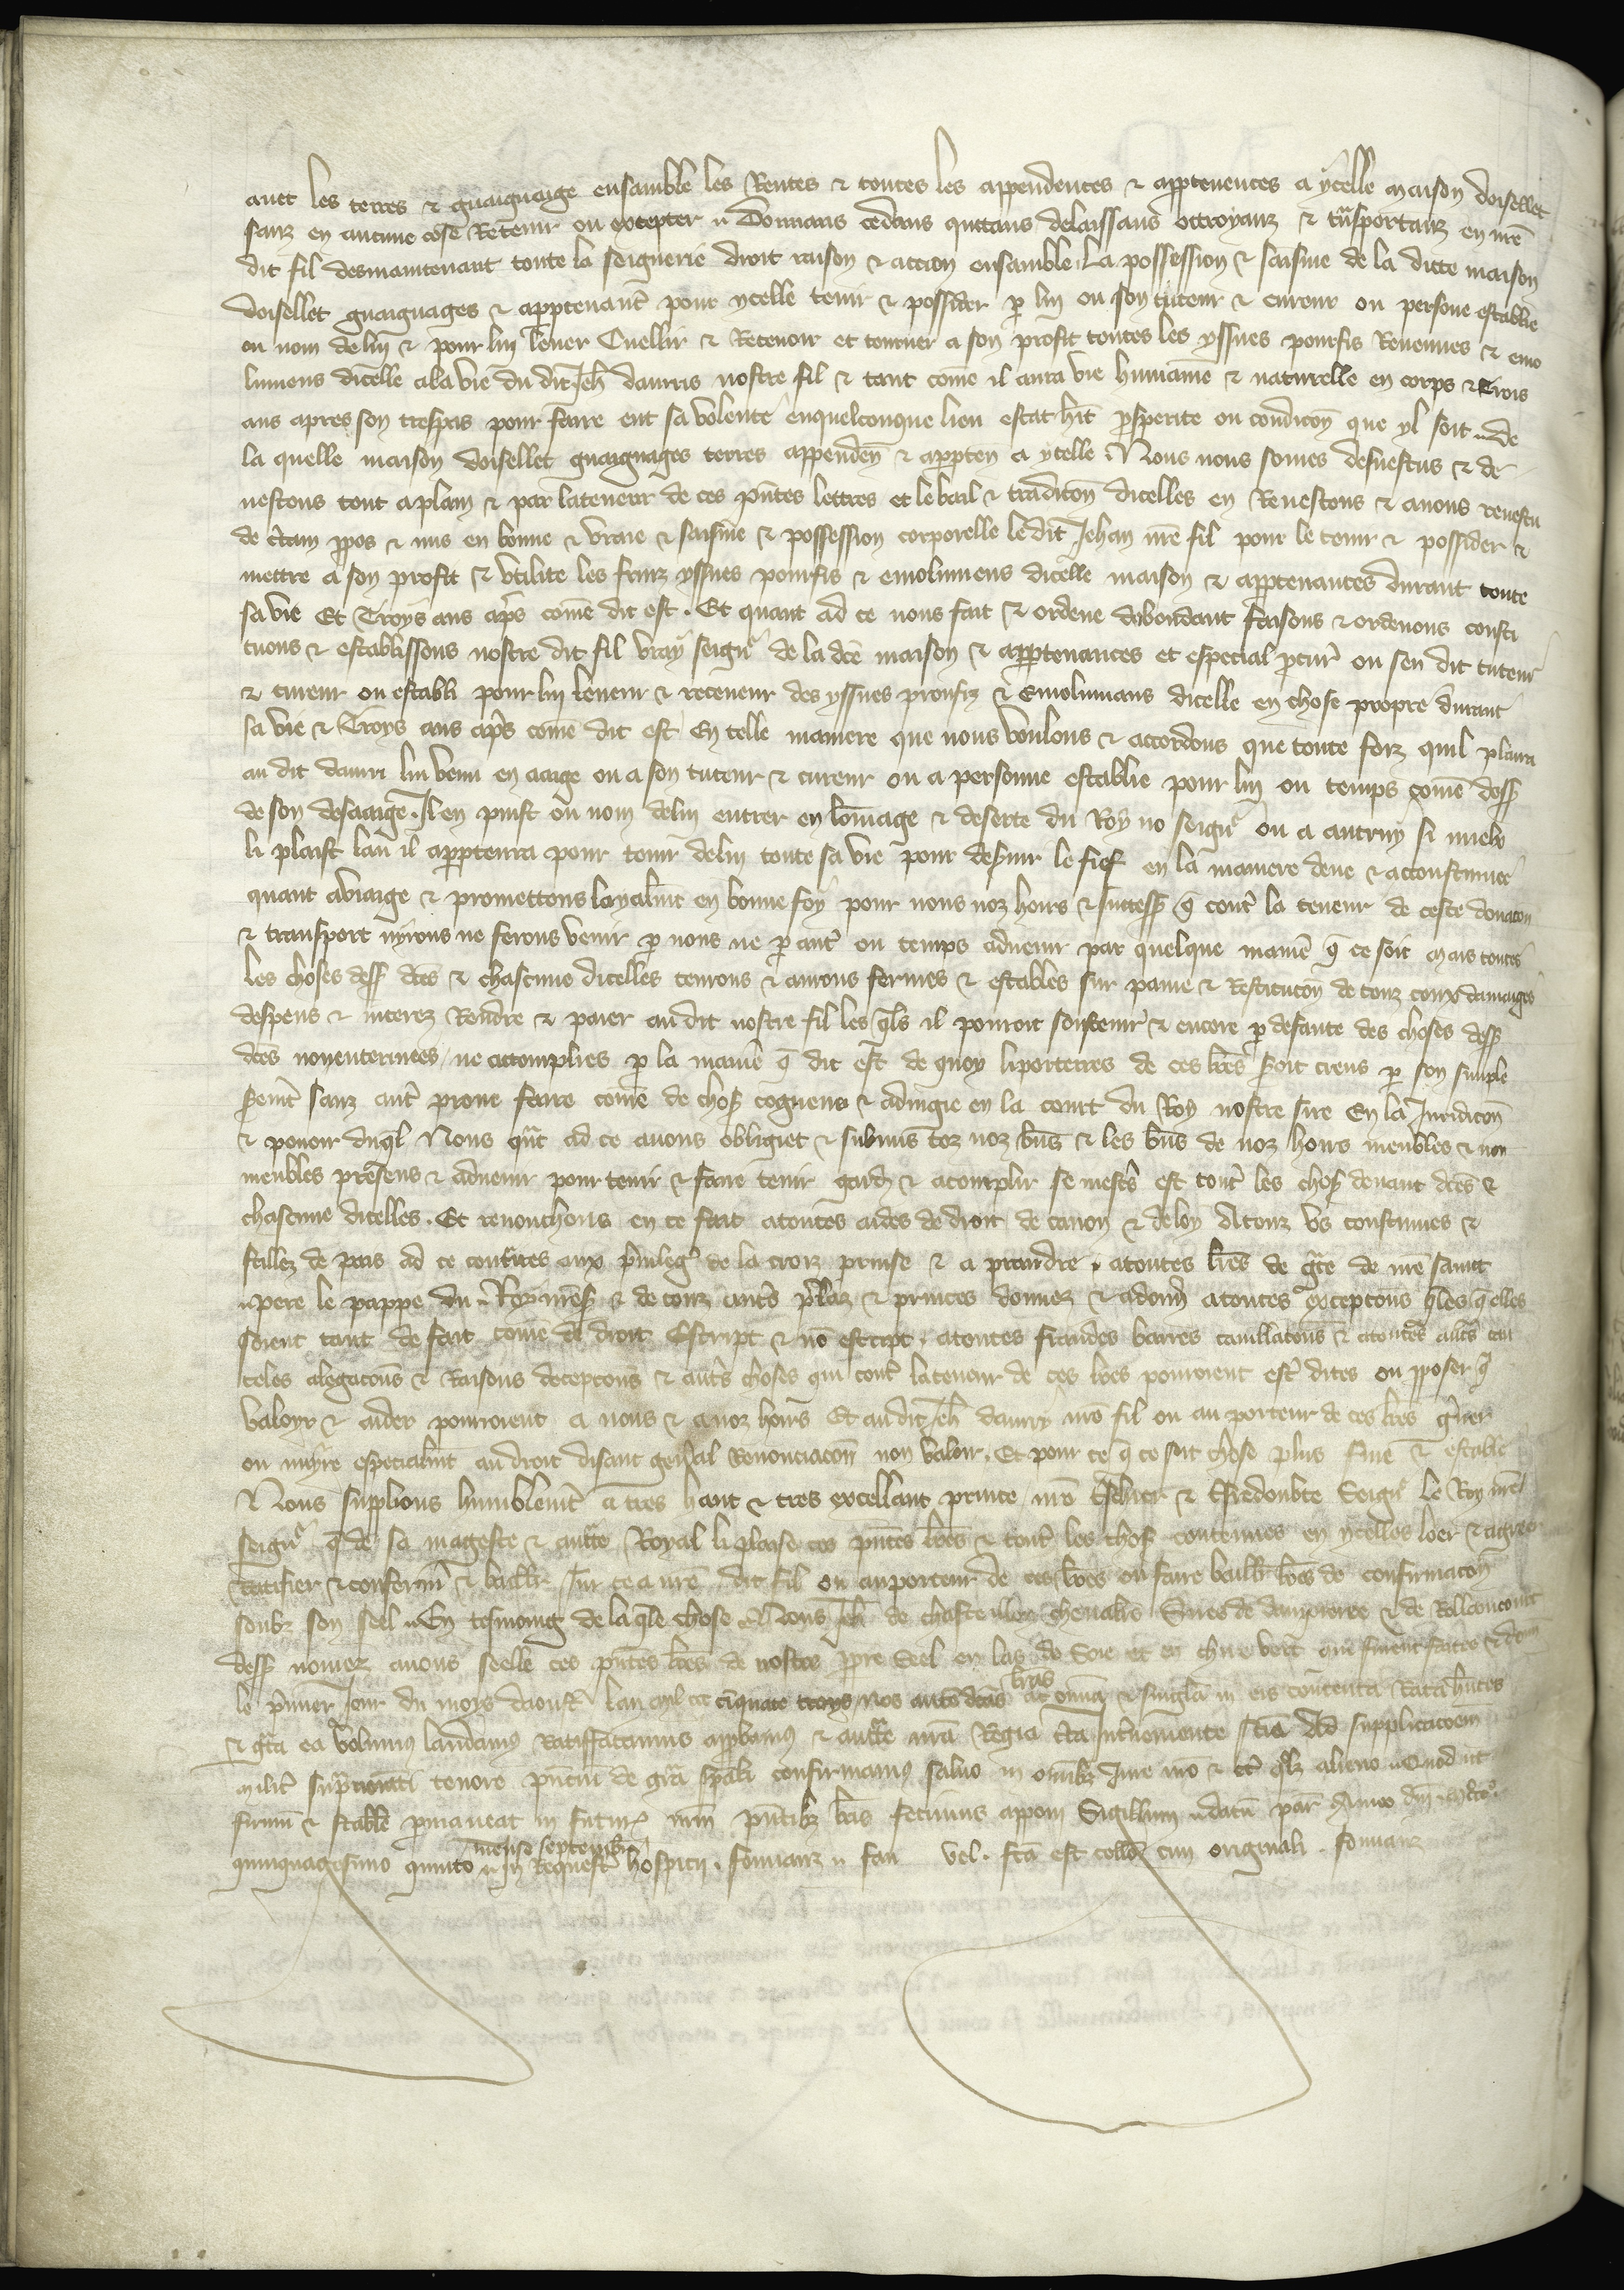 avec les terres & guaignaige ensamble les Rentes & toutes les appendences & apptenences a ycelle maison doisellet
sanz en aucune cose Retenir ou excepter Donnans cedans quittans delaissans ottroyanz & tnsportanz en nre
dit fil desmaintenant toute la seignerie droit raison & action ensamble la possession & saisine de la ditte maison
doisellet guaignages & apptenant pour ycelle tenir & possider p lui ou son tuteur & cureur ou persone establie
ou nom de lui & pour lui lever Cuellir & Recevoir et tourner a son profit toutes les yssues pourfis Revenues & emo
lumens dicelle a la vie du dit Jeh dauris nostre fil & tant come il aura vie humaine & naturelle en corps & trois
ans apres son trespas pour faire ent sa volente en quelconque lieu estat hit psperite ou condicon que yl soit de
la quelle maison doisellet guaignages terres appenden & appten a ycelle Nous nous somes desvestus & de
vestons tout a plain & par la teneur de ces pntes lettres et le bail & tradicon dicelles en Revestons & avons revestu
de ctain ppos & mis en bonne & vraie & saisine & possession corporelle le dit Jehan nre fil pour le tenir & possider &
mettre a son profit & utilite les fruiz yssues pourfis & emolumens dicelle maison & apptenances durant toute
sa vie Et Troys ans aps come dit est. Et quant ad ce nous fait & ordene dabondant faisons & ordenons consti
tuons & establissons nostre dit fil vray seignr de la dce maison & apptenances et especial pcur ou sen dit tuteur
& cureur ou establi pour lui leveur & receveur des yssues proufiz & Emolumans dicelle en chose propre durant
sa vie & Troys ans aps come dit est En telle maniere que nous voulons & accordons que toute foiz quil plaira
au dit dauri lui venu en aaige ou a son tuteur & cureur ou a personne establie pour lui ou temps come dess
de son desaaige. Il en puist ou nom de lui entrer en lomage & deserte du Roy no seignr ou a autruy si miels
li plaist lau il apptenra pour tenir de lui toute sa vie pour deservir le fief en la maniere deue & accoustumee
quant a viaige & promettons loyalmt en bonne foy pour nous noz hoirs & success q cont la teneur de ceste donacon
& transport nyrons ne ferons venir p nous ne p aut ou temps advenir par quelque manie q ce soit mais toutes
les choses dess dces & chascune dicelles tenrons & aurons fermes & estables sur paine & Restitucon de touz couz damaiges
despens & interez Rendre & paier au dit nostre fil les qls il pouroit soustenir & encore p defaute des choses dess
dces nonenterinees ne accomplies p la manie q dit est de quoy li porterres de ces lres soit creus p son simple
serment sanz aut prove faire come de chose cogneue & adiugie en la court du Roy nostre sire En la Juridicon
& povoir duql Nous qnt ad ce avons obligiet & submis toz noz bns & les bns de noz hoirs meubles & non
meubles presens & advenir pour tenir & faire tenir gard & acomplir se mests est tout les chos devant dces &
chascune dicelles. Et renonchons en ce fait a toutes aides de droit de canon & de loy A touz us coustumes &
stillez de pais ad ce contires aux privileg de la croiz prinse & a prandre. a toutes lres de gce de nre saint
pere le pappe du Roy mess & de touz auts prelaz & princes donnez & a donn a toutes excepcons qles qelles
soient tant de fait come de droit Escript & no escript. a toutes fraudes barres cavillacons & a toutes auts cau
teles alegacons & Raisons decepcons & auts choses qui cont la teneur de ces lres pouroient est dites ou pposer q
valoyr & aidier pouroient a nous & a noz hoirs Et au dit Jeh daury nre fil ou au porteur de ces lres grever
ou nuyre especialmt au droit disant general Renonciacon non valoir. Et pour ce q ce soit chose plus fme & estable
Nous supplions humblemt a tres hault & tres excellant prince nre tschier & tsredoubte Seignr le Roy nre
seignr q de sa mageste & auctte Royal li plaise ces pntes lres & tout les chos contenues en ycelles loer & agreer
Ratifier & confermr & baillr sur ce a nre dit fil ou au porteur de ces lres ou faire baillr lres de confirmacon
soubz son seel En tesmoing de la qle chose Nous Jeh de chasteillon chevalier Sires de dampierre & de Rollaincourt
dess nomez avons seelle ces pntes lres de nostre ppre Seel en las de Soie et en cire vert qui furent faites &
le prmier Jour du moys daoust lan mil ccc cinquate troys Nos aute dcas lras ac omia & singla in eis contenta Rata hntes
& gta ea volumus laudamus Ratifficamus appbamus & auctte nra Regia cta Interveniente scia Ad supplicacoem
milit supranoiati tenore pntiu de gra spali confirmamus salvo in omibz Jure nro & et qlz alieno Quod ut
firmu & stabile pmaneat in futur nrm pntibz lris fecimus apponi Sigillum datu par Anno dni m ccc
quinquagesimo quinto mense septembr In Requestis hospicii. sonianz fau vel. fca est collo cum originali. sonianz